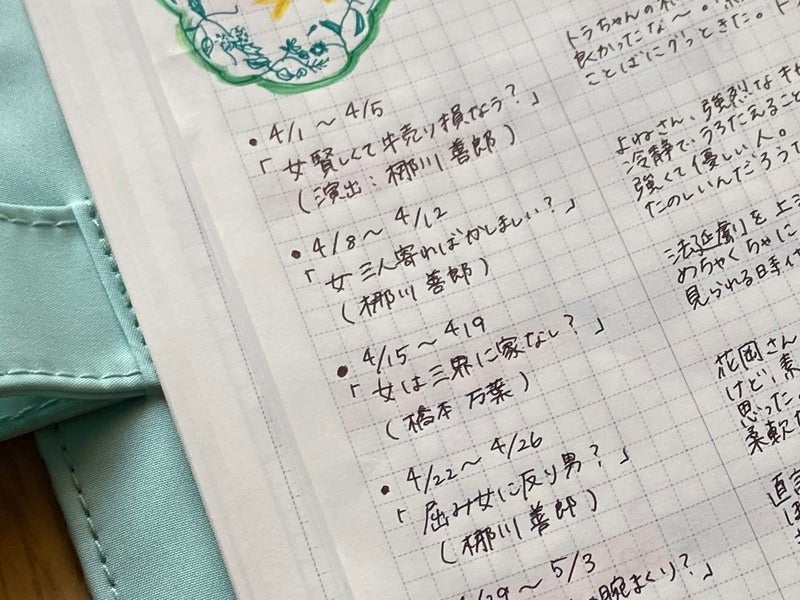 • 4/1 〜 4/5
「女賢しくて牛売り損なう？」
(演出：梛川 善郎)
• 4/8 〜 4/12
「女三人寄ればかしましい？」
(梛川 善郎)
• 4/15 〜 4/19
「女は三界に家なし？」
(橋本 万葉)
• 4/22 〜 4/26
「屈み女に反り男？」
(梛川 善郎)
/29 〜 5/3
腕まくり？」
トラちゃんの
良かったな〜。
ことばにグッときた。
よねさん、強烈なキャ
冷静で、うろたえること
強くて優しい人。
たのしいんだろうな
法廷劇を上
めちゃくちゃに
見られる日本
花岡さん
けど、素
思った
柔軟な
直